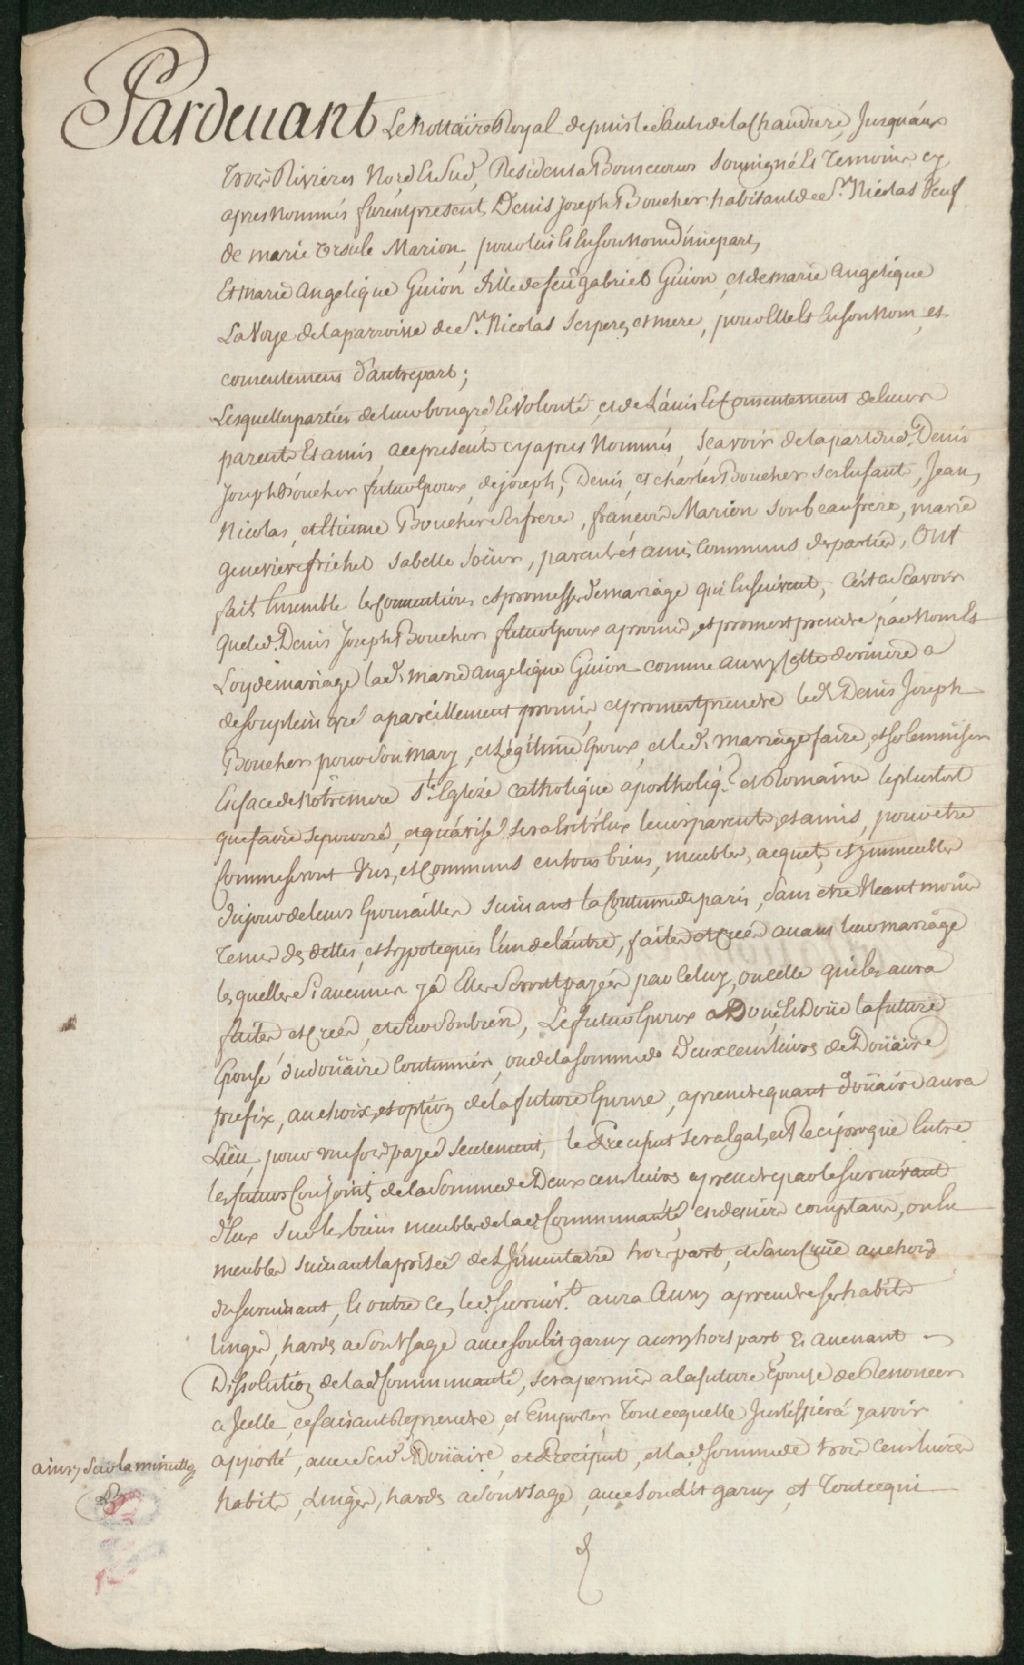 Pardevant Le Nottaire Royal depuis le Sault de la Chaudiere, Jusquáux
trois Rivieres Nord et Sud, Resident a Bonsecours soussigné Et Temoins cy
apres Nommés furent present Denis Joseph Boucher habitant de St. Nicolas Veuf
de marie Ursule Marion, pour lui Et En son Nom d'une part,
Et Marie Angelique Guion fille de feu gabriel Guion, et de marie Angelique
La Voye de la parroisse de St. Nicolas ses pere, et mere, pour Elle Et En son Nom, et
consentement d'autre part;
Lesquelles parties de leur bon gré Et Volonté, et de L'avis Et Consentement de leurs
parents Et amis, a ce present cy apres Nommés, Scavoir de la part dud. Denis
Joseph Boucher futur Epoux, de joseph, Denis, et charles Boucher ses Enfant, Jean,
Nicolas, et Etienne Boucher Ses frere, francois Marion son beaufrere, marie
genevieve frichet sa belle Soeur, parents et amis Communs des parties, Ont
fait Ensemble les Conventions et promesses de mariage qui Ensuivent, C'est a Scavoir
que led. Denis Joseph Boucher futur Epoux a promis, et promet prendre par Nom Et
Loy de mariage lad. marie angelique Guion comme aussy cette derniere a
de son plein gré apareillement promis, et promet prendre led. Denis Joseph
Boucher pour Son Mary, et Légitime Epoux, et led. mariage faire, et solemniser
En face de Nôtre mere Ste. Eglize Catholique apostholiq.e et Romaine le plustost
que faire se pourra, et qu'avisé sera Entr'Eux leurs parents, et amis, pour être
Comme seront Uns, et Communs en tous biens, meubles, acquets, et immeubles
du jour de leurs Epousailles suivant la Coutume de paris, sans être Neant moins
Tenus des dettes, et hypoteques l'un de l'autre, faites et Creés avant leur mariage
lesquelles Si aucunes y a Elles seront payées par Celuy, ou celle qui les aura
faites et Creés, et Sur Son bien, Le futur Epoux a Doué Et Doue la future
Epouse du douaire Coutumier, ou de la somme de Deux cens livres de Douaire
prefix, au choix, et option de la future Epouse, a prendre quant douaire aura
Lieu, pour une fois payée Seulement, le Preciput sera Egal, et Reciproque Entre
les futurs Conjoints de la Somme de Deux cens livres a prendre par le survivant
d'Eux sur les biens meubles de lad. Communauté, en deniers comptans, ou En
meubles suivant la prisée de L'Inventaire hors part, et sans Crue au choix
du survivant, Et outre Ce, led. survivt. aura Aussy a prendre ses habits
linges, hardes a Son Usage avec son lit garny aussy hors part, Et avenant
Dissolution de lad. Communauté, sera permis a la future Epouse de Renoncer
a Icelle, ce faisant Reprendre, et Emporter Tout ce quelle Justifiera y avoir
apporté, avec Sesd. Douaire, et Preciput, et lad. somme de trois cens livres
habits, Linges, hardes a Son Usage, avec son dit garny, et Tout ce qui
ainsy Sur la minutte